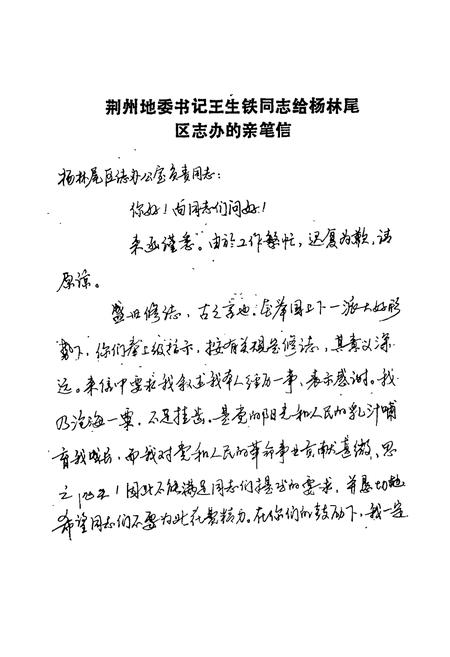 荆州地委书记王生铁同志给杨林尾
区志办的亲笔信
杨林尾区志办公室负责同志：
你好！向同志们问好！
来函谨悉。由於工作繁忙，迟复为歉，请
原谅。
盛世修志，古之言也，在举国上下一派大好形
势下，你们奉上级指示，按有关规定修志，其意义深
远。来信中要求我叙述我本人经历一事，表示感谢。我
乃沧海一粟，不足挂齿。是党的阳光和人民的乳汁哺
育我成长，而我对党和人民的革命事业贡献甚微，思
之！因此不能满足同志们提出的要求，并恳切地
希望同志们不要为此在费精力。在你们的鼓励下，我一定